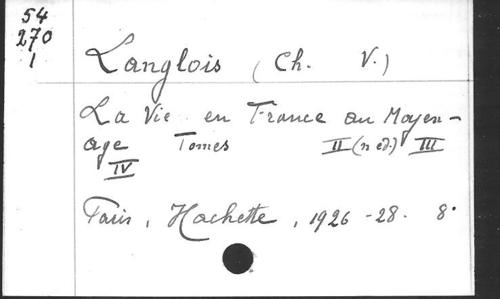 54
270
1
Langlois (Ch. V.)
La Vie en France au Moyen-
age Tomes II (n éd.) III
IV
Paris, Hachette, 1926-28. 8°